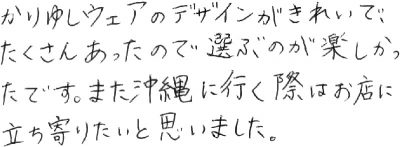 かりゆしウェアのデザインがきれいで、
たくさんあったので選ぶのが楽しかっ
たです。また沖縄に行く際はお店に
立ち寄りたいと思いました。